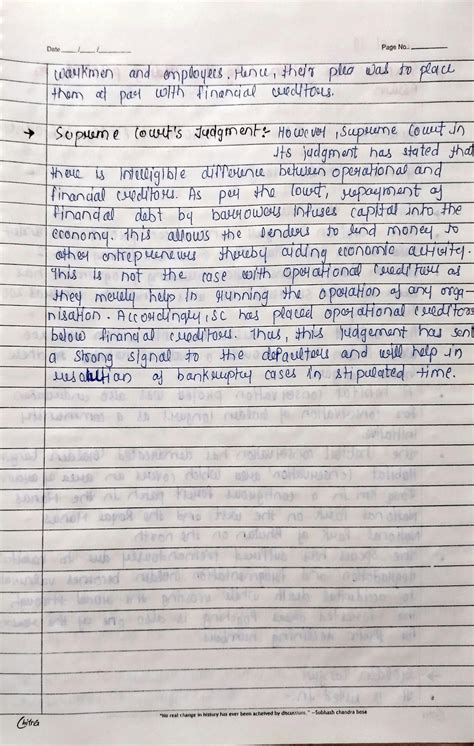 Date ___/___/______ Page No.: ________
workmen and employees. Hence, their plea was to place
them at par with financial creditors.
→ Supreme Court's Judgment:- However, Supreme Court in
its judgment has stated that
there is intelligible difference between operational and
financial creditors. As per the court, repayment of
financial debt by borrowers infuses capital into the
economy. This allows the lenders to lend money to
other entrepreneurs thereby aiding economic activity.
This is not the case with operational creditors as
they merely help in running the operation of any orga-
nisation. Accordingly, SC has placed operational creditors
below financial creditors. Thus, this judgement has sent
a strong signal to the defaulters and will help in
resolution of bankruptcy cases in stipulated time.
"No real change in history has ever been achieved by discussions." –Subhash chandra bose
Chitra